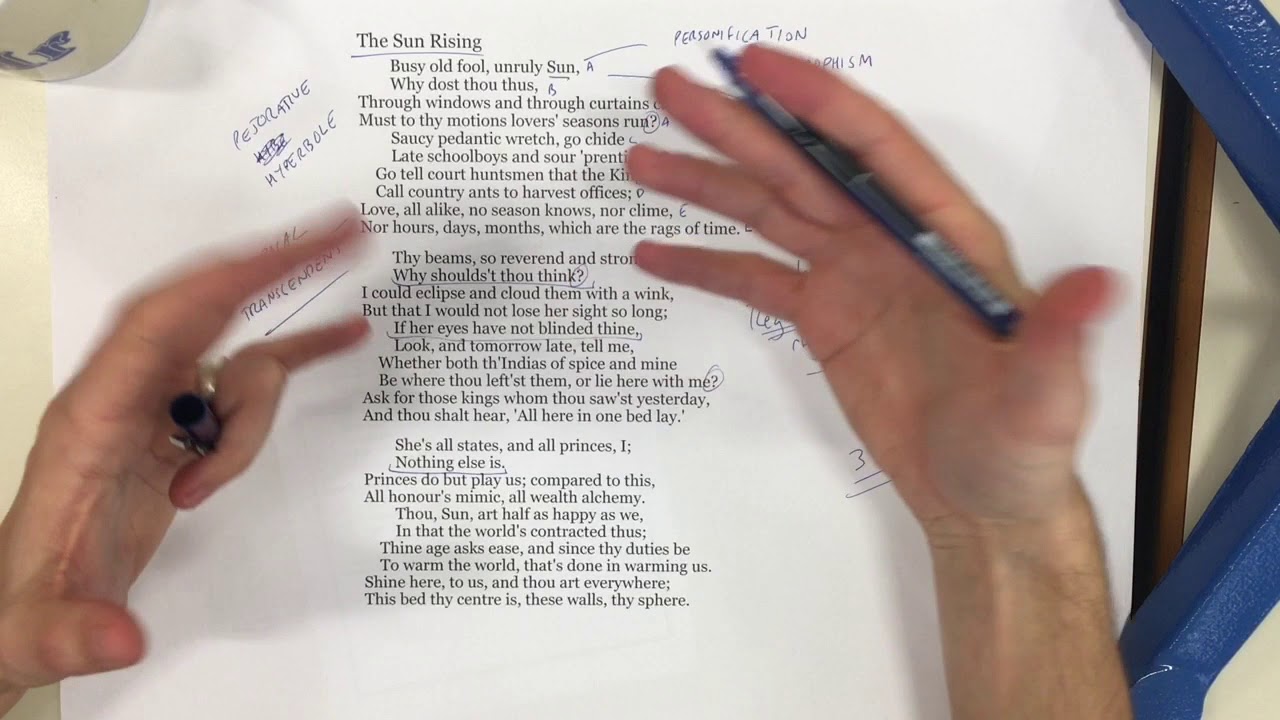 The Sun Rising
PERSONIFICATION
Busy old fool, unruly Sun, A
Why dost thou thus, B
Through windows and through curtains
Must to thy motions lovers' seasons run? A
Saucy pedantic wretch, go chide C
Late schoolboys and sour
Go tell court huntsmen that the
Call country ants to harvest offices; D
Love, all alike, no season knows, nor clime, E
Nor hours, days, months, which are the rags of time.
PEJORATIVE
HYPERBOLE
Thy beams, so reverend and
Why shoulds't thou think?
I could eclipse and cloud them with a wink,
But that I would not lose her sight so long;
If her eyes have not blinded thine,
Look, and tomorrow late, tell me,
Whether both th'Indias of spice and mine
Be where thou left'st them, or lie here with me?
Ask for those kings whom thou saw'st yesterday,
And thou shalt hear, 'All here in one bed lay.'
She's all states, and all princes, I;
Nothing else is.
Princes do but play us; compared to this,
All honour's mimic, all wealth alchemy.
Thou, Sun, art half as happy as we,
In that the world's contracted thus;
Thine age asks ease, and since thy duties be
To warm the world, that's done in warming us.
Shine here, to us, and thou art everywhere;
This bed thy centre is, these walls, thy sphere.
3